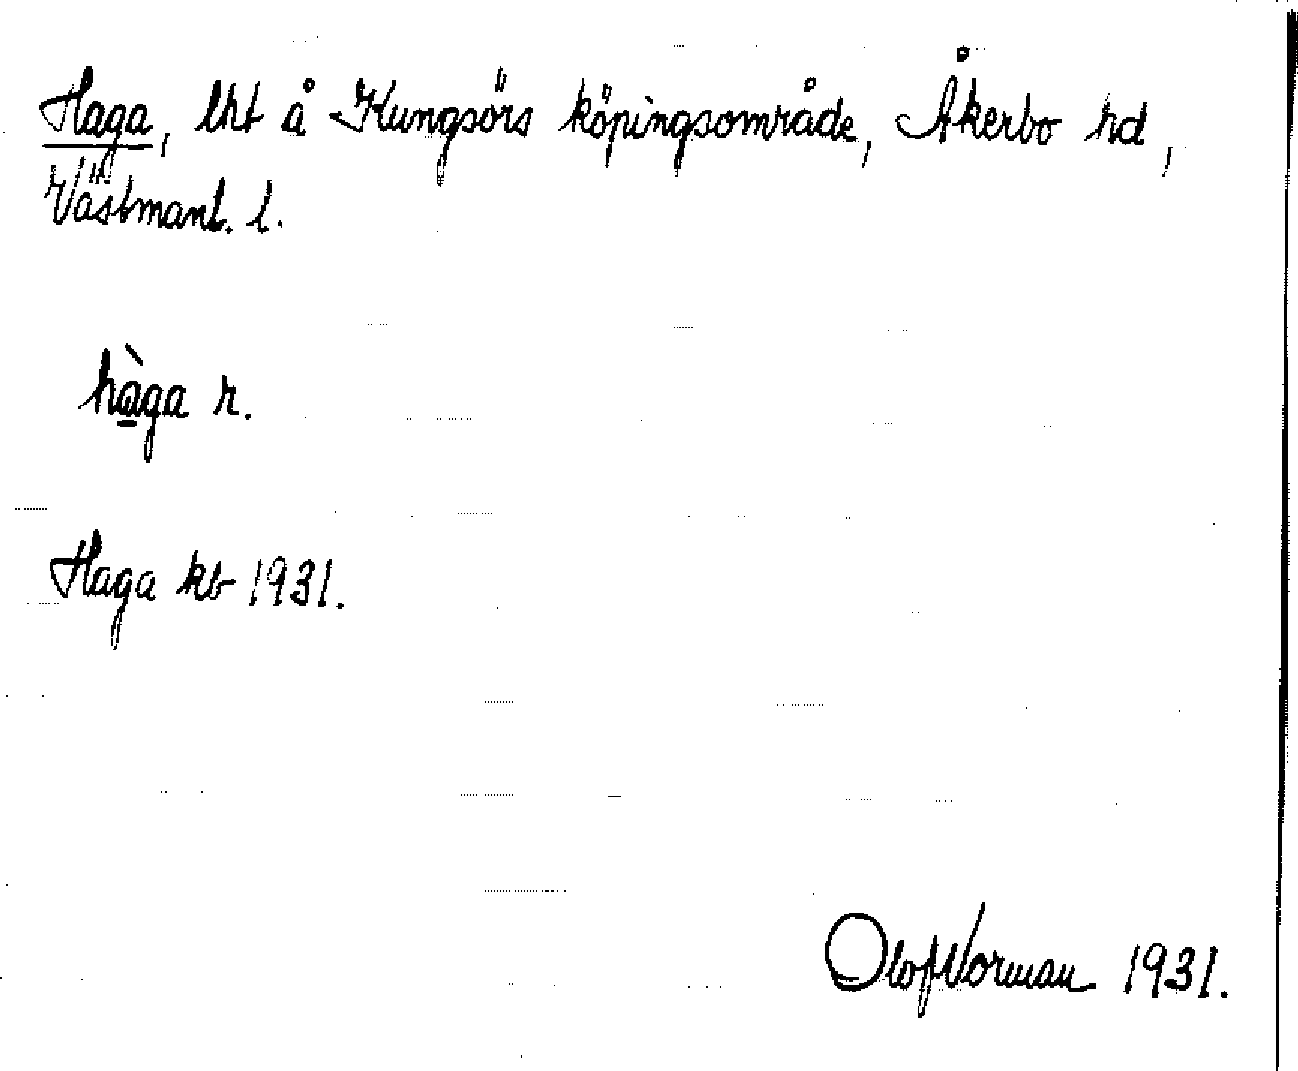 Haga, lht å Kungsörs köpingsområde, Åkerbo hd,
Västmanl. l.
hà̱ga r.
Haga kb 1931.
Olof Norman 1931.